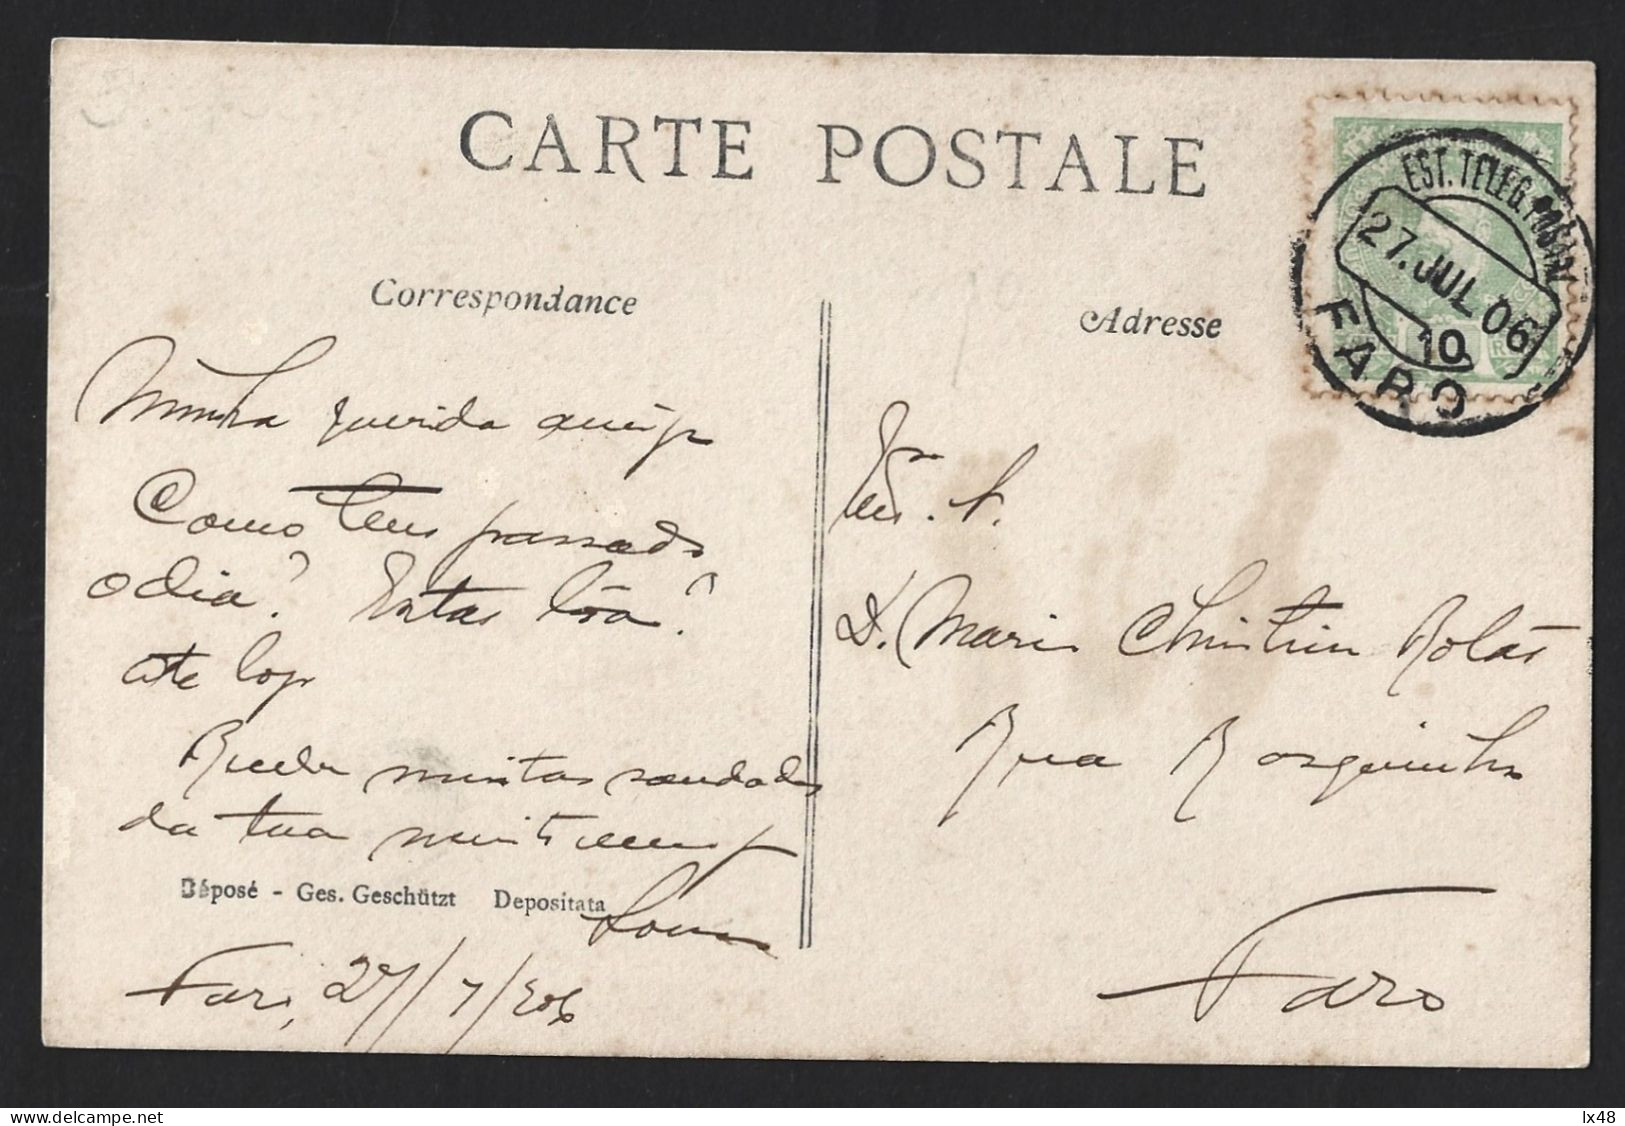 CARTE POSTALE
Correspondance
Adresse
EST. TELEG. POSTAL
27. JUL 06
10
FARO
Minha querida amiga
Como tens passado
o dia? Estas bôa?
até logo
Receba muitas saudades
da tua muito amiga
Déposé - Ges. Geschützt Depositata
Faro, 27/7/906
D. Maria Christina Rolão
Rua
Faro
lx48